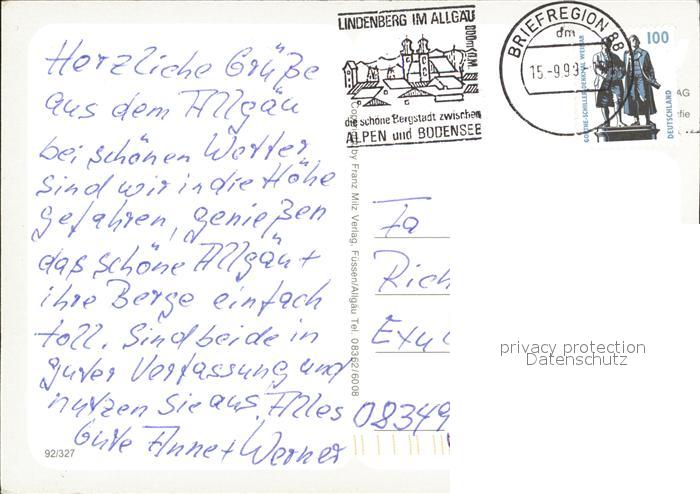 Herzliche Grüße
aus dem Allgäu
bei schönen Wetter
sind wir in die Höhe
gefahren, genießen
das schöne Allgäu +
ihre Berge einfach
toll. Sind beide in
guter Verfassung und
nutzen sie aus. Alles
Gute Anne + Werner
92/327
LINDENBERG IM ALLGÄU
800m ü.M.
die schöne Bergstadt zwischen
ALPEN und BODENSEE
BRIEFREGION 88
dm
15.-9.9
100
GOETHE-SCHILLER-DENKMAL WEIMAR
DEUTSCHLAND
AG
fie
Copyright by Franz Milz Verlag, Füssen/Allgäu Tel. 08362/6008
Fa
Rich
08349
privacy protection
Datenschutz